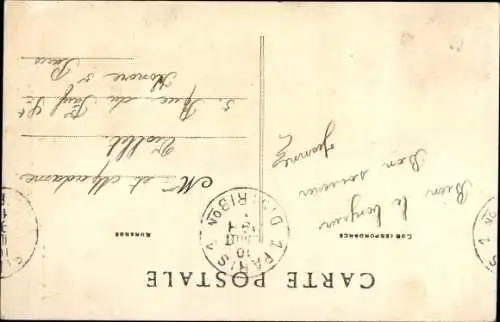 CARTE POSTALE
CORRESPONDANCE
ADRESSE
Bien le bonjour
Bon souvenir
Mr et Madame
Viollet
5. Rue du Faubg St
Honoré
Paris
PARIS
DISTRIBON
10